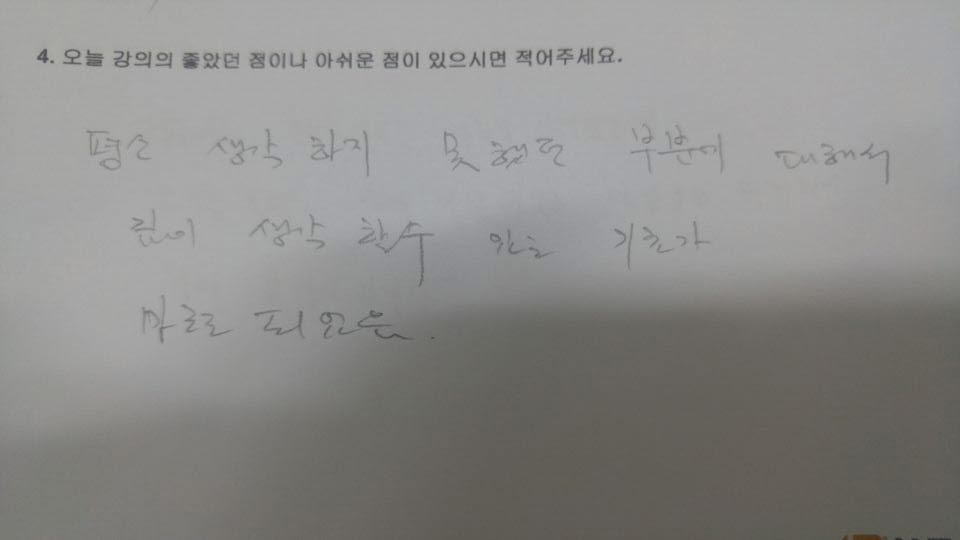 4. 오늘 강의의 좋았던 점이나 아쉬운 점이 있으시면 적어주세요.
평소 생각 하지 못했던 부분에 대해서
깊이 생각 할수 있는 기초가